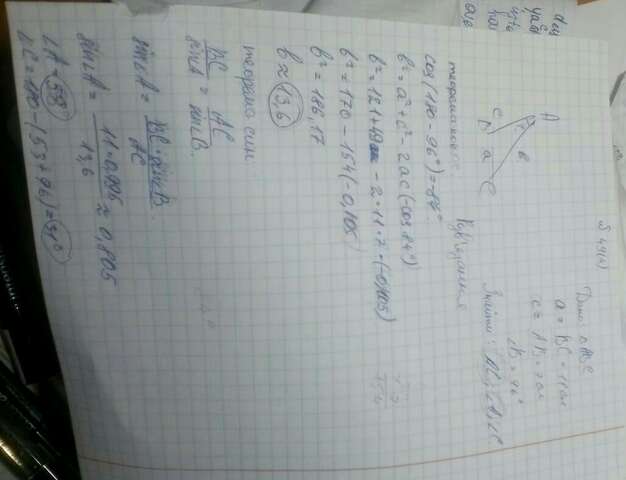 549(1)
Дано: △ABC
a = BC = 11см
c = AB = 7см
∠B = 96°
Знайти: AC, ∠A, ∠C
Розв'язання
A
c
b
B
a
C
теорема кос.
cos(180-96°)=84°
b² = a² + c² - 2ac(-cos 84°)
b² = 121+49 - 2·11·7·(-0,105)
b² = 170 - 154(-0,105)
b² = 186,17
b ≈ 13,6
теорема син.
BC/sinA = AC/sinB
sin∠A = BC·sinB/AC
sin∠A = 11·0,995/13,6 ≈ 0,805
∠A = 53°
∠C = 180-(53+96)=31°